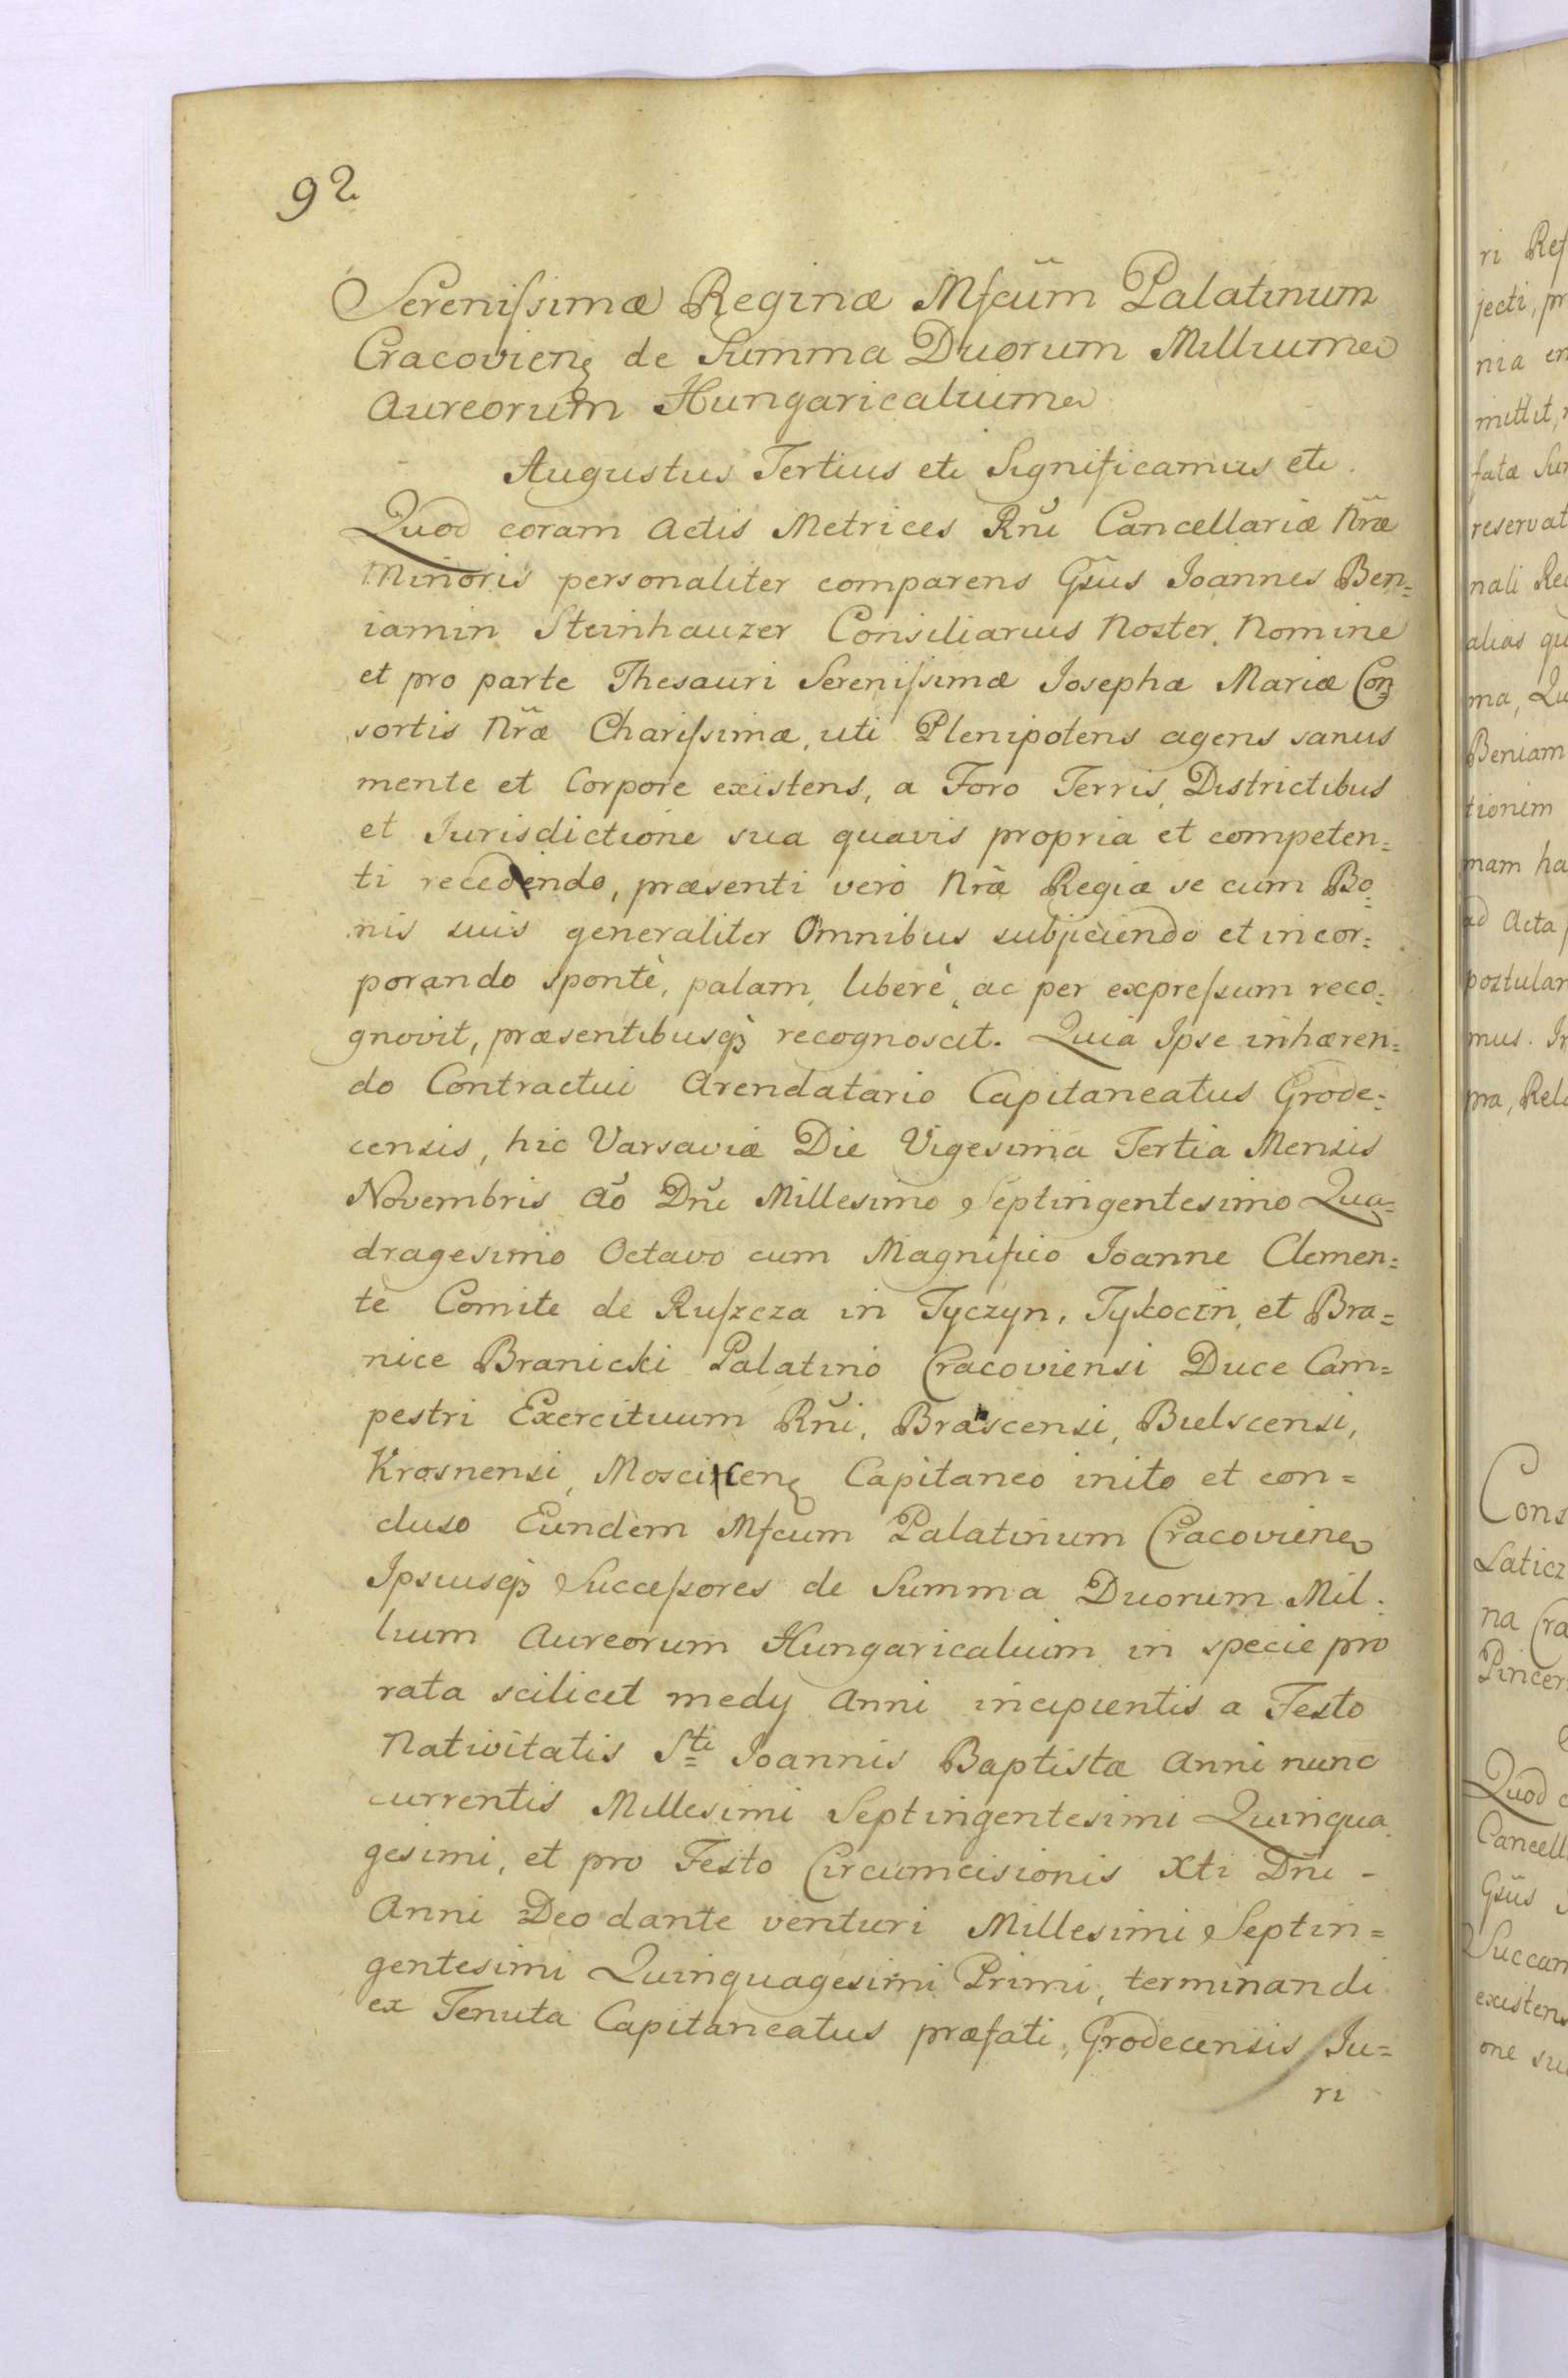 92
Serenissimæ Reginæ Mfcum̃ Palatinum
Cracovien̄ de Summa Duorum Millium
Aureorum Hungaricalium
Augustus Tertius etc Significamus etc.
Quod coram Actis Metrices Rñi Cancellariæ Nræ
Minoris personaliter comparens Gsus Joannes Ben=
iamin Steinhauzer Consiliarius Noster, Nomine
et pro parte Thesauri Serenissimæ Josephæ Mariæ Con=
sortis Nræ Charissimæ, uti Plenipotens agens sanus
mente et Corpore existens, a Foro Terris, Districtibus
et Jurisdictione sua quavis propria et competen=
ti recedendo, præsenti vero Nræ Regiæ se cum Bo=
nis suis generaliter Omnibus subjiciendo et incor=
porando spontè, palam, liberè, ac per expressum reco=
gnovit, præsentibusq3 recognoscit. Quia Ipse inhæren=
do Contractui Arendatario Capitaneatus Grode=
censis, hic Varsaviæ Die Vigesima Tertia Mensis
Novembris Aõ Dñi Millesimo Septingentesimo Qua=
dragesimo Octavo cum Magnifico Joanne Clemen=
te Comite de Ruszcza in Tyczyn, Tykocin, et Bra=
nice Branicki Palatino Cracoviensi Duce Cam=
pestri Exercituum Rñi, Brascensi, Bielscensi,
Krosnensi, Moscicen̄ Capitaneo inito et con=
cluso Eundem Mfcum Palatinum Cracovien̄
Ipsiusq3 Successores de Summa Duorum Mil=
lium Aureorum Hungaricalium in specie pro
rata scilicet medy Anni incipientis a Festo
Nativitatis Sti Joannis Baptistæ Anni nunc
currentis Millesimi Septingentesimi Quinqua=
gesimi, et pro Festo Circumcisionis Xti Dñi -
Anni Deo dante venturi Millesimi Septin=
gentesimi Quinquagesimi Primi, terminandi
ex Tenuta Capitaneatus præfati, Grodecensis Ju=
ri
ri Res
jecti, pr
nia en
mittit,
fatæ Su
reservat
nali Re
alias qu
ma, Qu
Beniam
tionem
mam ha
ad Acta
postular
mus. In
pra, Rel
Cons
Laticz
na Cra
Pincer
Quod c
Cancell
Gsus
Succam
existens
one su